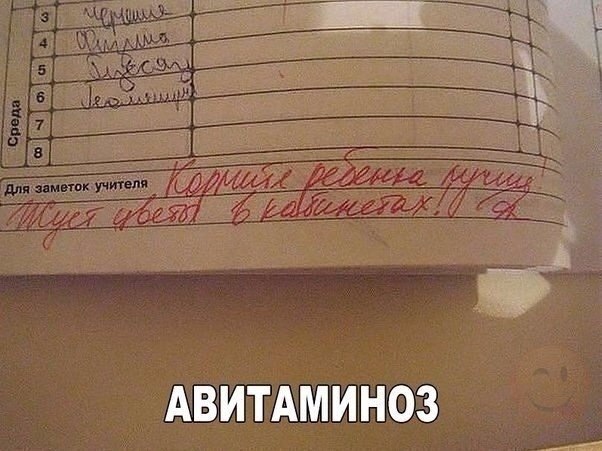 3 Черчение
4 Физика
5 Русский
6 Геометрия
7
Среда
8
Для заметок учителя Кормите ребенка лучше!
Жует цветы в кабинетах!
АВИТАМИНОЗ